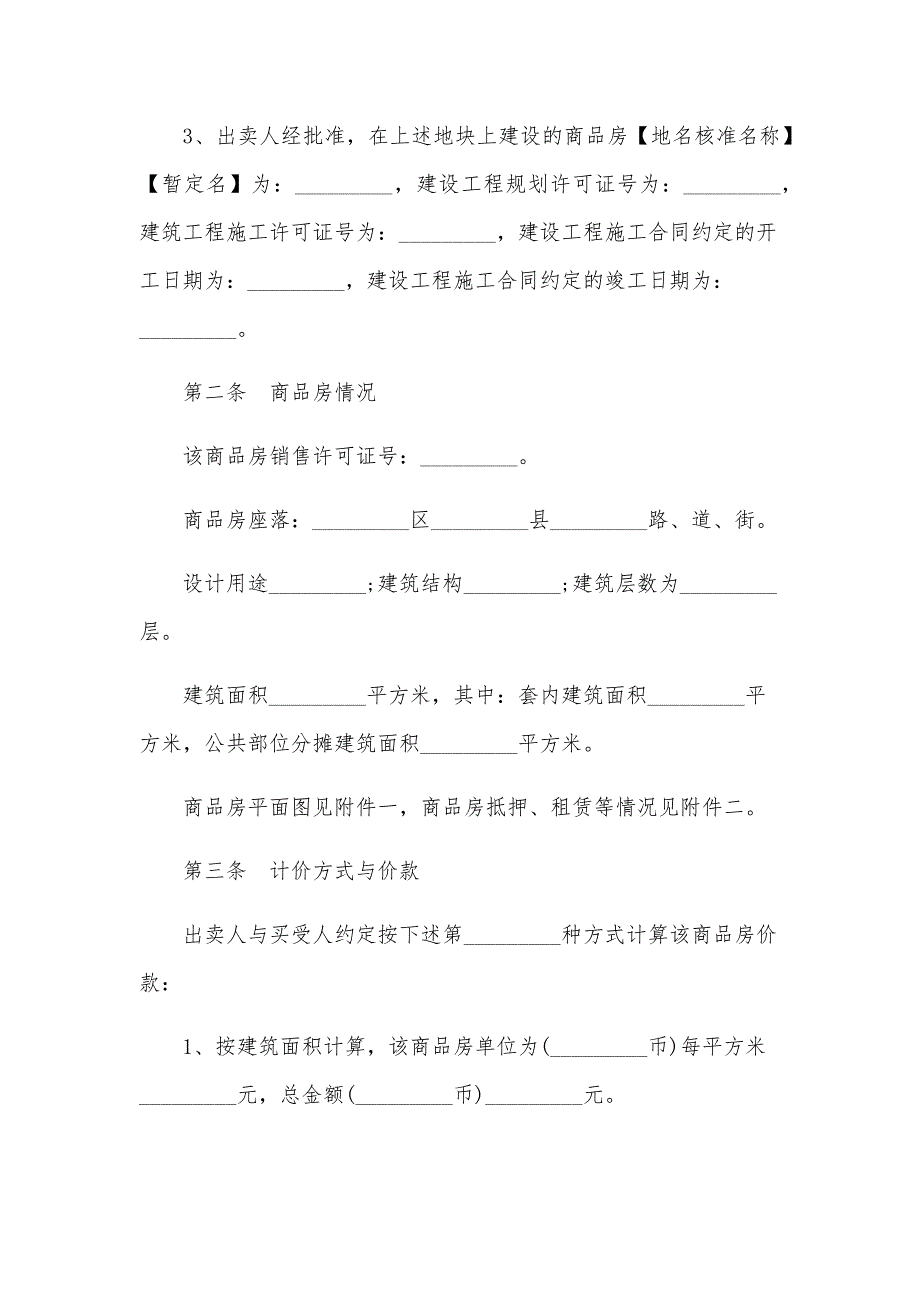 3、出卖人经批准，在上述地块上建设的商品房【地名核准名称】
【暂定名】为：_________，建设工程规划许可证号为：_________，
建筑工程施工许可证号为：_________，建设工程施工合同约定的开
工日期为：_________，建设工程施工合同约定的竣工日期为：
_________。
第二条　商品房情况
该商品房销售许可证号：_________。
商品房座落：_________区_________县_________路、道、街。
设计用途_________;建筑结构_________;建筑层数为_________
层。
建筑面积_________平方米，其中：套内建筑面积_________平
方米，公共部位分摊建筑面积_________平方米。
商品房平面图见附件一，商品房抵押、租赁等情况见附件二。
第三条　计价方式与价款
出卖人与买受人约定按下述第_________种方式计算该商品房价
款：
1、按建筑面积计算，该商品房单位为(_________币)每平方米
_________元，总金额(_________币)_________元。